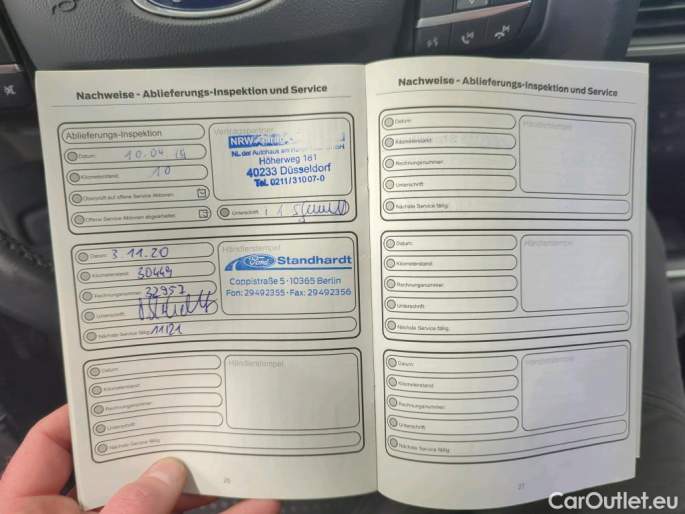 Nachweise - Ablieferungs-Inspektion und Service
Ablieferungs-Inspektion
Datum: 10.04.19
Kilometerstand: 10
Offene Service Aktionen abgearbeitet:
Vertragspartner
NRW
NL der Autohaus am
Höherweg 181
40233 Düsseldorf
Tel. 0211/31007-0
Unterschrift:
Datum: 3.11.20
Kilometerstand: 30449
Rechnungsnummer: 32957
Unterschrift:
Nächste Service fällig: 11/21
Händlerstempel
Ford Standhardt
Coppistraße 5 · 10365 Berlin
Fon: 29492355 · Fax: 29492356
Datum:
Kilometerstand:
Rechnungsnummer:
Unterschrift:
Nächste Service fällig:
Händlerstempel
26
Nachweise - Ablieferungs-Inspektion und Service
Datum:
Kilometerstand:
Rechnungsnummer:
Unterschrift:
Nächste Service fällig:
Händlerstempel
Datum:
Kilometerstand:
Rechnungsnummer:
Unterschrift:
Nächste Service fällig:
Händlerstempel
Datum:
Kilometerstand:
Rechnungsnummer:
Unterschrift:
Nächste Service fällig:
Händlerstempel
27
CarOutlet.eu